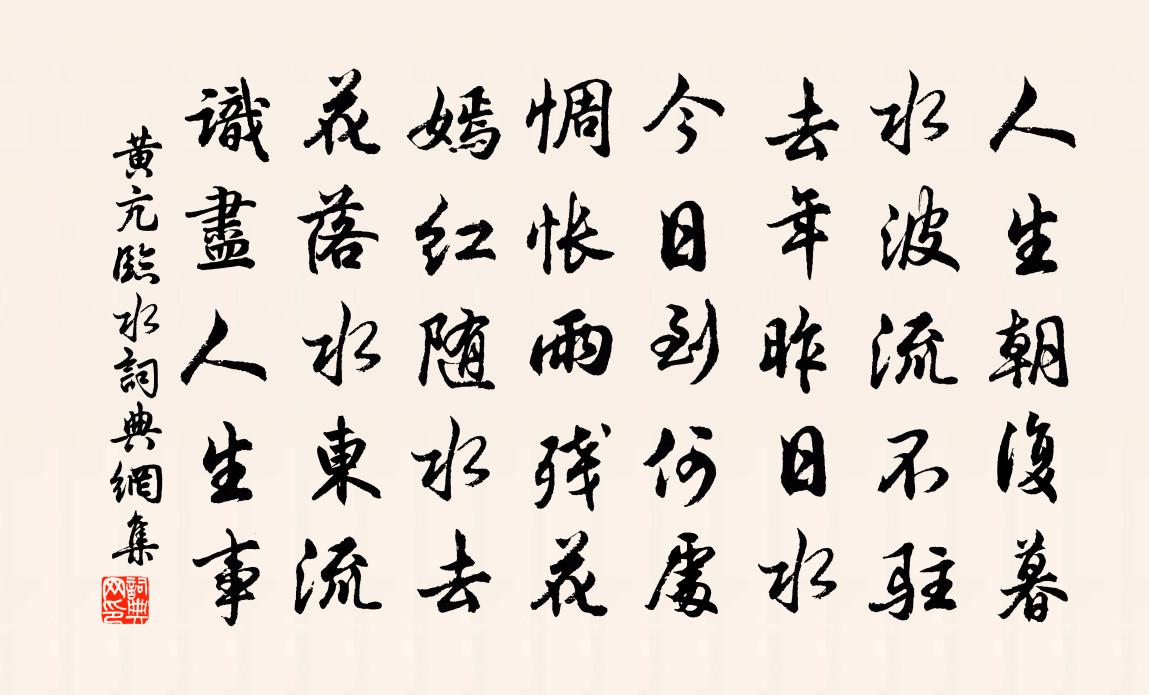 人生朝復暮
水波流不駐
去年昨日水
今日到何處
惆怅雨残花
嫣红随水去
花落水東流
識盡人生事
黄亢臨水詞典網集
詞典網印